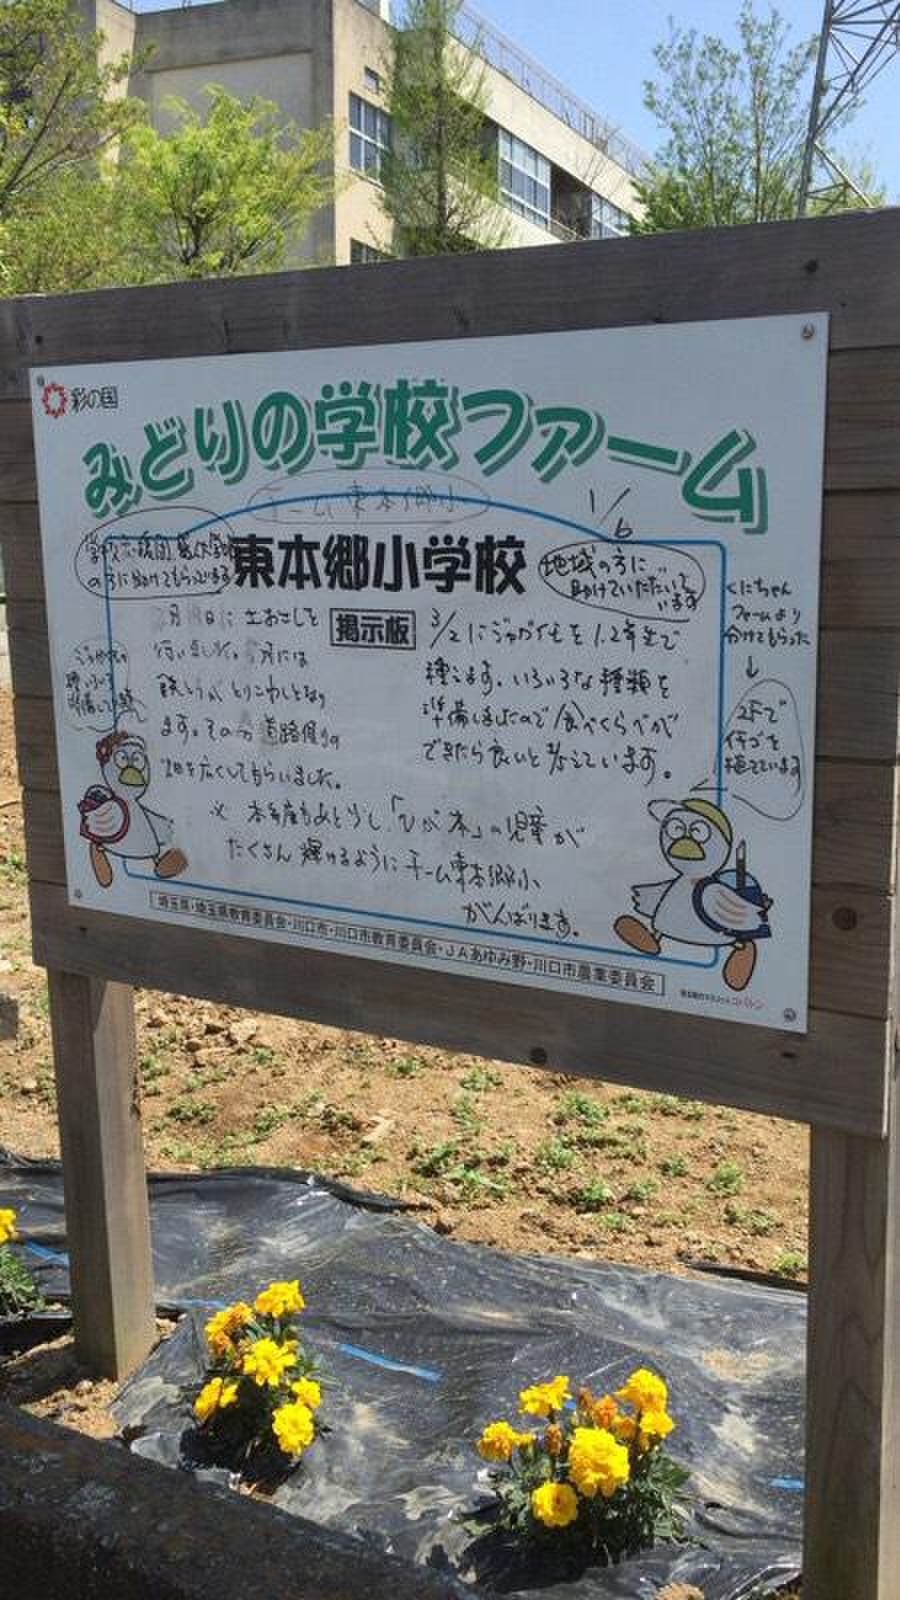 彩の国
みどりの学校ファーム
チーム東本郷小
東本郷小学校
掲示板
の方に助けてもらってます
地域の方に
助けていただいて
います
ファームより
分けてもらった
↓
2Fで
イチゴを
植えています
日に土おこしを
行いました。月には
ます。その分道路側の
畑を広くしてもらいました。
3/2にジャガイモを1.2年生で
種えます。いろいろな種類を
準備しましたので食べくらべが
できたら良いと考えています。
※ 本年度もあと少し「ひが本」の児童が
たくさん輝けるようにチーム東本郷小
がんばります。
埼玉県・埼玉県教育委員会・川口市・川口市教育委員会・JAあゆみ野・川口市農業委員会
埼玉県のマスコット コバトン